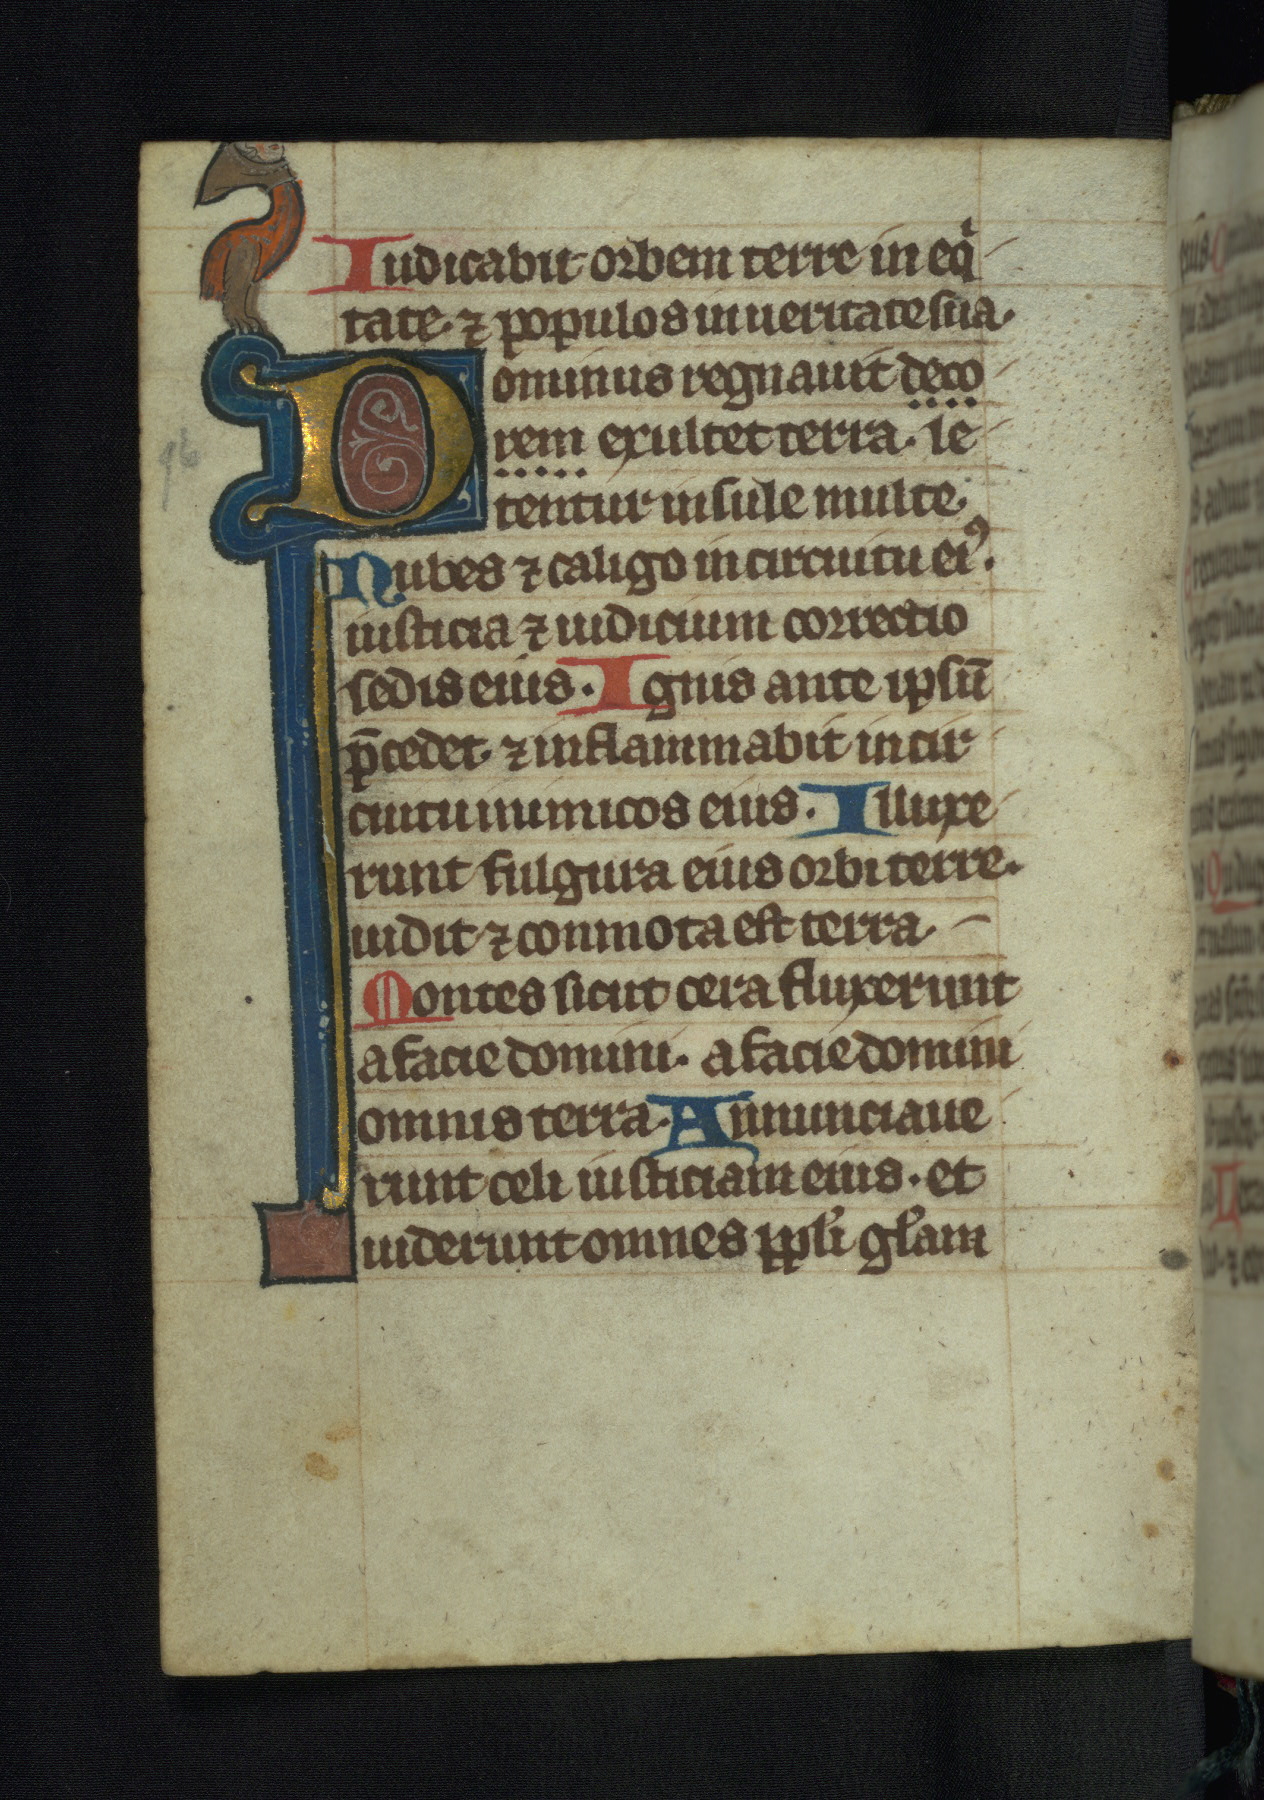 Iudicabit orbem terre in eqͥ
tate. ⁊ populos in ueritate sua.
Dominus regnauit deco
rem exultet terra. le
tentur insule multe.
Nubes ⁊ caligo in circuitu eiꝰ.
iusticia ⁊ iudicium correctio
sedis eius. Ignis ante ipsū
p̄cedet. ⁊ inflammabit in cir
cuitu inimicos eius. Illuxe
runt fulgura eius orbi terre.
uidit ⁊ conmota est terra.
Montes sicut cera fluxerunt
a facie domini. a facie domini
omnis terra. Annunciaue
runt celi iusticiam eius. et
uiderunt omnes ppl̓i gl̓am